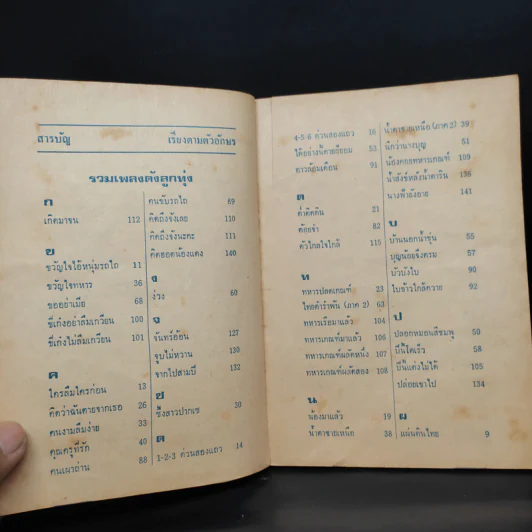 สารบัญ เรียงตามตัวอักษร
รวมเพลงดังลูกทุ่ง
ก
เกิดมาจน 112
ข
ขวัญใจไอ้หนุ่มรถไถ 11
ขวัญใจทหาร 36
ขออย่าเมีย 68
ขี้เก๋งอย่าลืมเกวียน 100
ขี่เก๋งไม่ลืมเกวียน 101
ค
ใครลืมใครก่อน 13
คิดว่าฉันตายจากเธอ 26
คนงามลืมง่าย 33
คุณครูที่รัก 40
คนเผาถ่าน 88
คนขับรถไถ 89
คิดถึงจังเลย 110
คิดถึงจังนะคะ 111
คิดฮอดน้องแดง 140
ง
ง่วง 60
จ
จันทร์อ้อน 127
จูบไม่หวาน 130
จากไปสามปี 132
ซ
ซึ้งสาวปากเซ 30
ด
1-2-3 ด่วนสองแถว 14
4-5-6 ด่วนสองแถว 16
ได้อย่างน้ำตาย้อย 53
ดาวล้อมเดือน 91
ต
ต่ำติดดิน 21
ต้อยช้ำ 82
ตัวไกลใจใกล้ 115
ท
ทหารปลดเกณฑ์ 23
ไทยดำรำพัน (ภาค 2) 63
ทหารเรือมาแล้ว 104
ทหารเกณฑ์มาแล้ว 106
ทหารเกณฑ์ผลัดหนึ่ง 107
ทหารเกณฑ์ผลัดสอง 108
น
น้องมาแล้ว 19
น้ำตาชายเหนือ 38
น้ำตาชายเหนือ (ภาค 2) 39
นึกว่านางบุญ 51
น้องคอยทหารเกณฑ์ 109
136
นางฟ้ายังอาย 141
บ
บ้านนอกน้ำขุ่น 55
บุญน้อยจึงตรม 57
บัวบังใบ 90
ใบข้าวใกล้ควาย 92
ป
ปลอกหมอนสีชมพู 50
ปืนโตเร็ว 58
ปืนแต่งไม่ได้ 105
ปล่อยเขาไป 134
ผ
แผ่นดินไทย 9